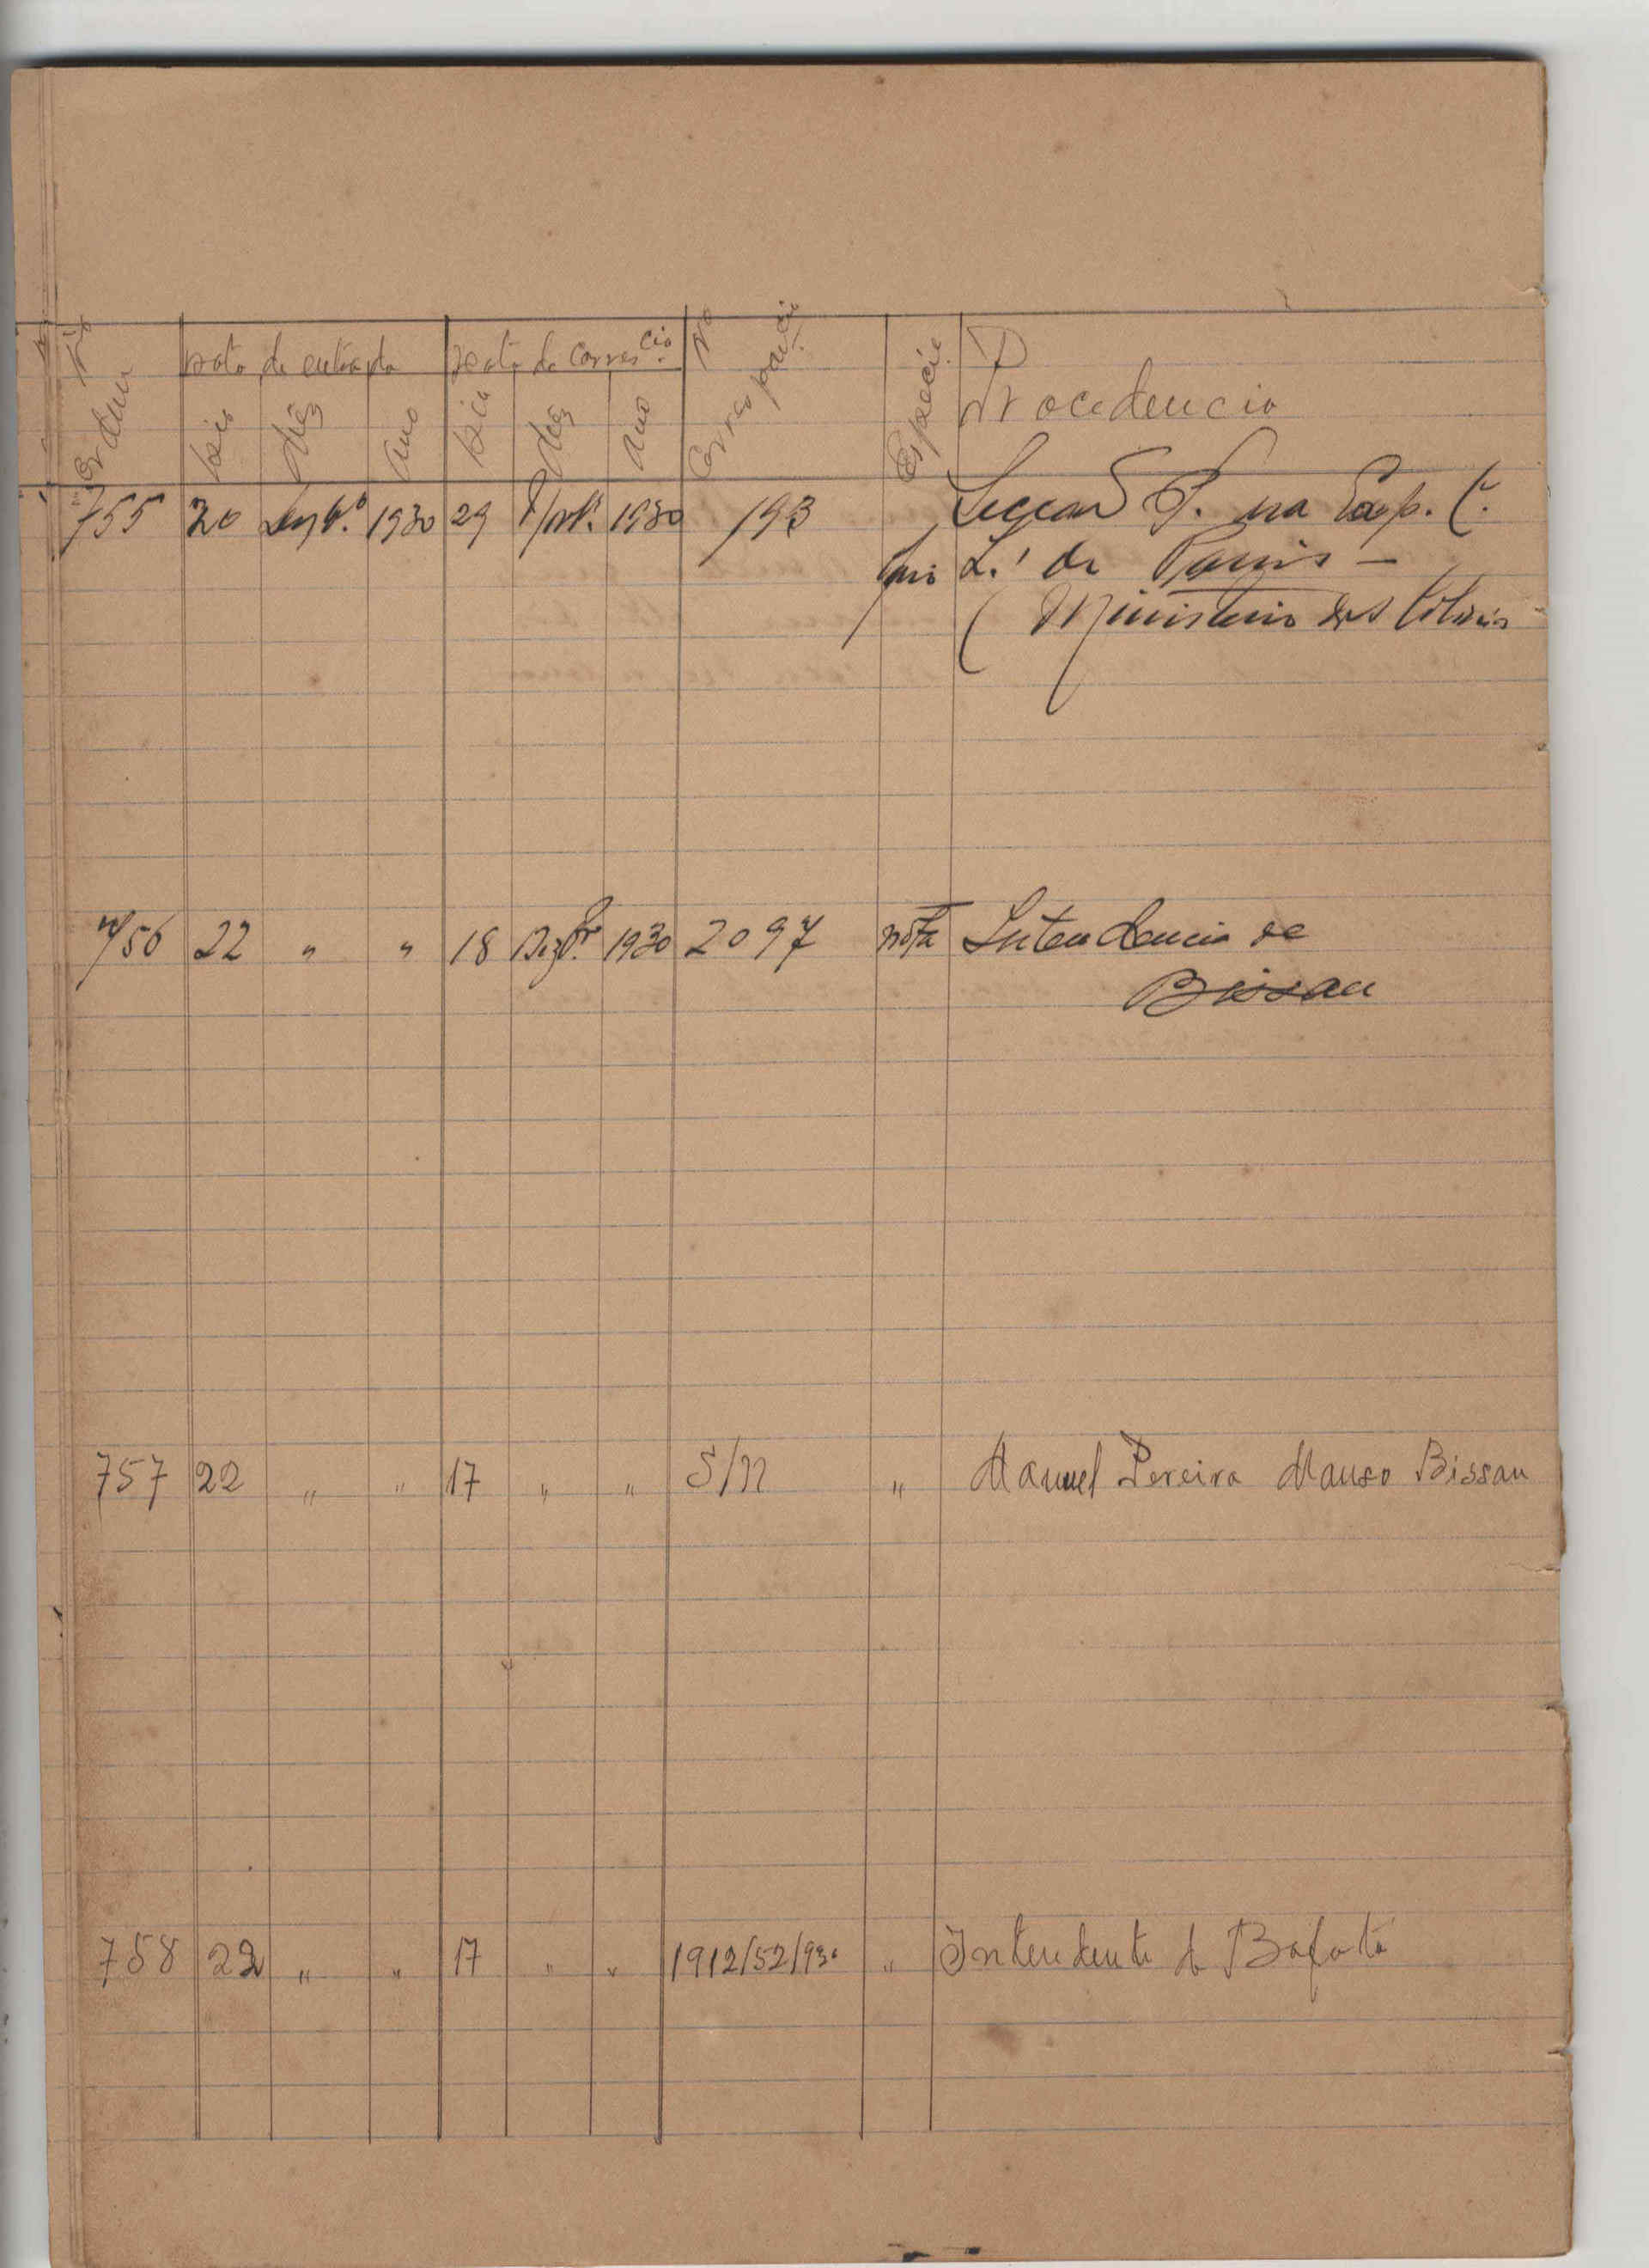 Nº Ordem
Data de entrada
Data da corres.cia
Nº Correspon.cia
Espécie
Procedencia
Dia Mês Ano Dia Mês Ano
755 20 Dezbº. 1930 29 1930 193 Secção P. na Exp. C.
de Paris —
( Ministerio das Colonias
756 22 " " 18 Dezbr.º 1930 2097 nota Intendencia de
Bissau
757 22 " " 17 " " S/N " Manuel Pereira Manso Bissau
758 22 " " 17 " " 1912/52/930 " Intendente de Bafatá